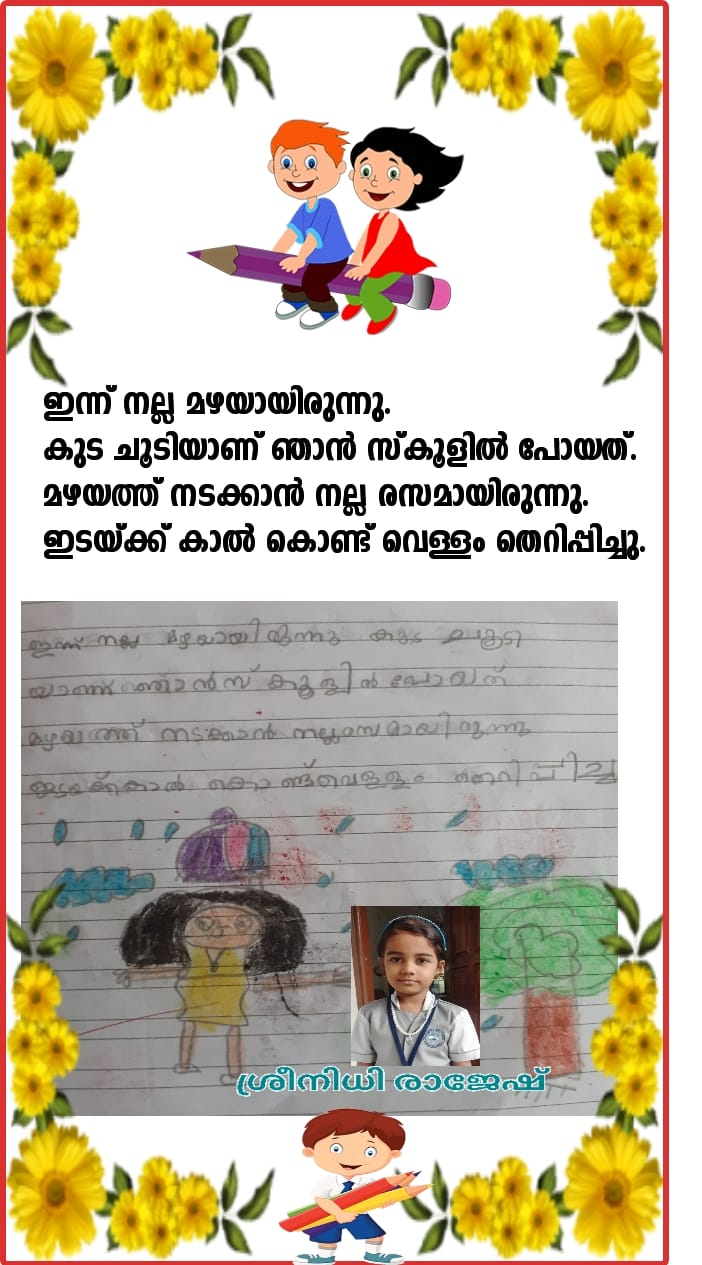 ഇന്ന് നല്ല മഴയായിരുന്നു.
കുട ചൂടിയാണ് ഞാൻ സ്കൂളിൽ പോയത്.
മഴയത്ത് നടക്കാൻ നല്ല രസമായിരുന്നു.
ഇടയ്ക്ക് കാൽ കൊണ്ട് വെള്ളം തെറിപ്പിച്ചു.
ഇന്ന് നല്ല മഴയായിരുന്നു കുട ചൂടി
യാണ് ഞാൻ സ്കൂളിൽ പോയത്
മഴയത്ത് നടക്കാൻ നല്ലരസമായിരുന്നു
ഇടയ്ക്ക്കാൽ കൊണ്ട്വെള്ളം തെറിപ്പിച്ചു
ശ്രീനിധി രാജേഷ്